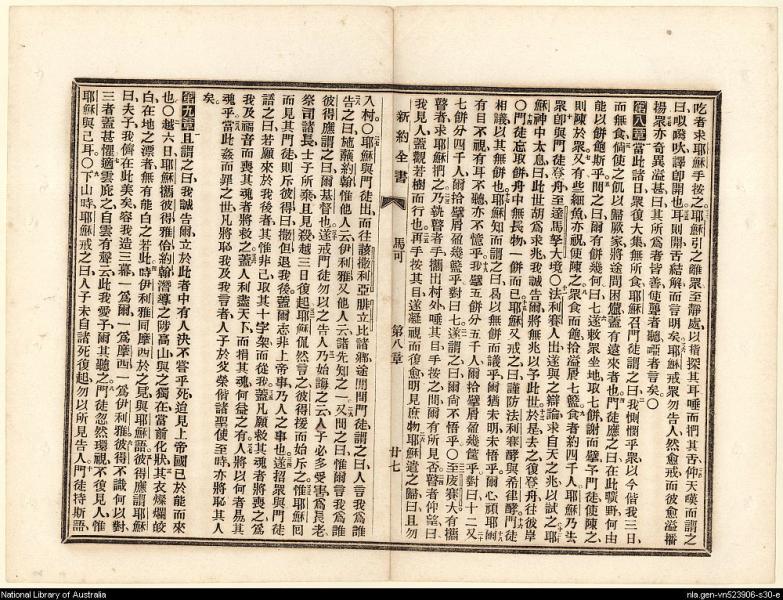 吃者求耶穌手按之耶穌引之離眾至靜處以指探其耳唾而捫其舌仰天嘆而謂之
譯卽開也耳則開舌結解而言明矣耶穌戒眾勿告人然愈戒而彼愈溢播
揚眾亦奇異溢甚曰其所為者皆善使聾者聽啞者言矣〇
第八章 當此諸日眾復大集無所食耶穌召門徒謂之曰我惻憫乎眾以今偕我三日
而無食倘使之飢以歸厥家將途間困憊蓋有遠來者也門徒應之曰在此曠野何由
能以餅飽斯乎問之曰爾有餅幾何曰七遂敕眾坐地取七餅謝而擘予門徒使陳之
則陳於眾又有些細魚亦祝使陳之眾食而飽拾溢屑七籃食者約四千人耶穌乃去
眾卽與門徒登舟至達馬拏大境〇法利賽人出遂與之辯論求自天之兆以試之耶
穌神中太息曰此世胡為求兆我誠告爾將無兆以予此世於是去之復登舟往彼岸
〇門徒忘取餅舟中無長物一餅而已耶穌又戒之曰謹防法利賽酵與希律酵門徒
相議以其無餅也耶穌知而謂之曰曷以無餅而議乎爾猶未明未悟乎爾心頑耶爾
有目不視有耳不聽亦不憶乎我擘五餅分五千人爾拾擘屑盈幾筐乎對曰十二又
七餅分四千人爾拾擘屑盈幾籃乎對曰七遂謂之曰爾尚不悟乎〇至賽大有攜
瞽者求耶穌捫之乃執瞽者手攜出村外唾其目手按之問爾有所見否瞽者仰望曰
我見人蓋觀若樹而行也再手按其目遂凝視而復愈明見庶物耶穌遣之歸曰且勿
新約全書 馬可 第八章 廿七
入村〇耶穌與門徒出而往該撒利亞腓立比諸鄉途間問門徒謂之曰人言我為誰
告之曰施蘸約翰惟他人云伊利雅又他人云諸先知之一又問之曰惟爾言我為誰
彼得應之曰爾基督也遂戒門徒勿以之告人乃始誨之云人子必多受害為長老
祭司諸長士子所棄且見殺越三日復起耶穌侃然言之彼得援而始斥之惟耶穌回
而見其門徒則斥彼得曰撒但退我後蓋爾志非上帝事乃人之事也遂招眾與門徒
語之曰若願來於我後者其惟非己取其十字架而從我蓋凡願救其魂者將喪之為
我及福音而喪其魂者將救之蓋人利盡天下而損其魂何益之有人將以何者易其
魂乎當此姦而罪之世凡將恥我及我言者人子於父榮偕諸聖使至時亦將恥其人
矣
第九章 且謂之曰我誠告爾立於此者中有人決不嘗乎死迨見上帝國已於能而來
也〇越六日耶穌攜彼得雅各約翰潛導之陟高山與之獨在當前化厥狀其衣燦爛皎
白在地之漂者無有能白之若此時伊利雅同摩西於之見與耶穌語彼得應謂耶穌
曰夫子我儕在此美矣容我造三幕一為爾一為摩西一為伊利雅彼得不識何以對
三者蓋甚懼適雲庇之自雲有聲云此我愛子爾其聽之門徒忽然環視不復見人惟
耶穌與己耳〇下山時耶穌戒之曰人子未自諸死復起勿以所見告人門徒持斯語
National Library of Australia
nla.gen-vn523906-s30-e